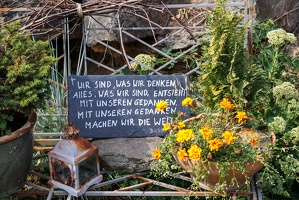 "WIR SIND, WAS WIR DENKEN.
ALLES, WAS WIR SIND, ENTSTEHT
MIT UNSEREN GEDANKEN.
MIT UNSEREN GEDANKEN
MACHEN WIR DIE WELT."